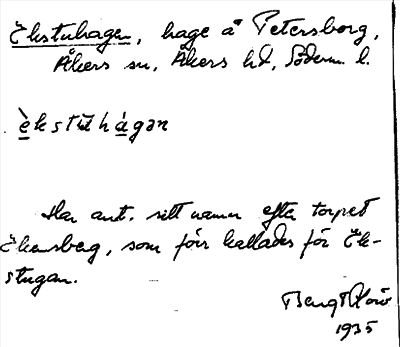 Ekstuhagen, hage å Petersborg,
Åkers sn, Åkers hd, Söderm. l.
èkstu̇hágən
Har ant. sitt namn efter torpet
Ekensberg, som förr kallades för Ek-
stugan.
Bengt
1935